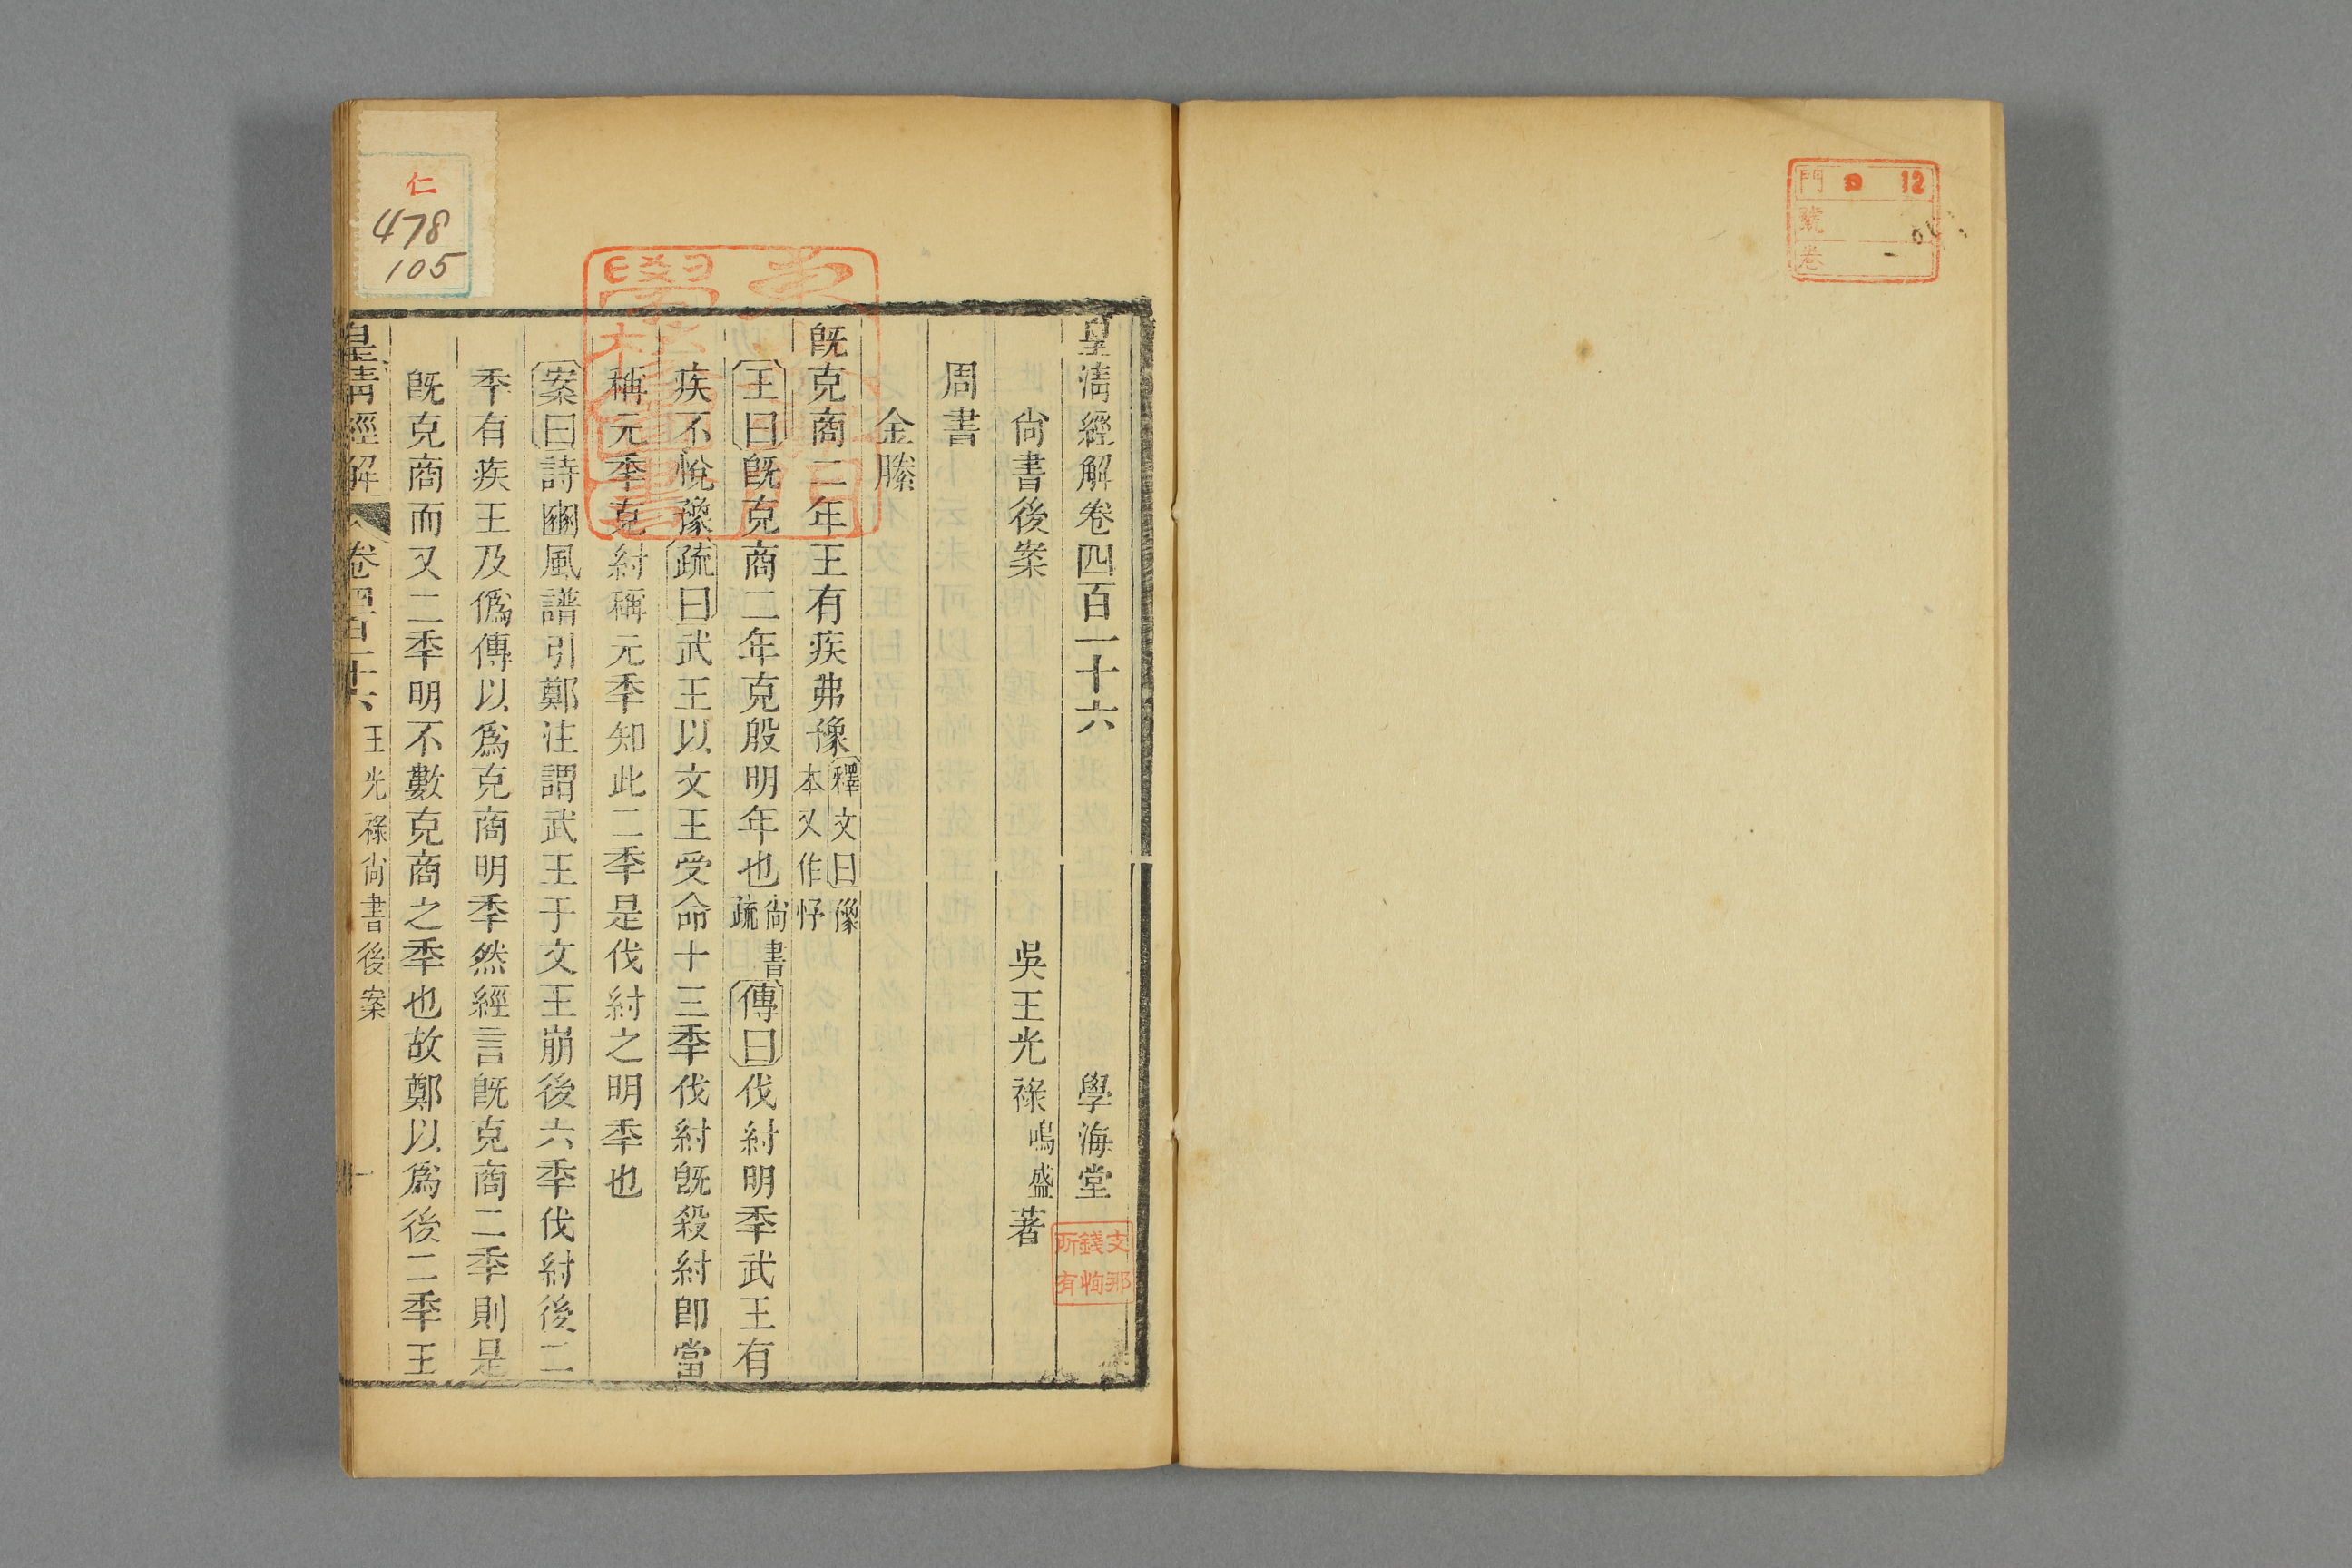 門 12
號
卷
皇清經解卷四百一十六 學海堂
支那
錢恂
所有
尚書後案 吳王光祿鳴盛著
周書
金縢
既克商二年王有疾弗豫釋文曰豫
本又作忬
王曰既克商二年克殷明年也尚書
疏傳曰伐紂明季武王有
疾不悅豫疏曰武王以文王受命十三季伐紂既殺紂卽當
稱元季克紂稱元季知此二季是伐紂之明季也
案曰詩豳風譜引鄭注謂武王于文王崩後六季伐紂後二
季有疾王及僞傳以爲克商明季然經言既克商二季則是
既克商而又二季明不數克商之季也故鄭以爲後二季王
皇清經解 卷四百一十六 王光祿尚書後案 一
仁
478
105